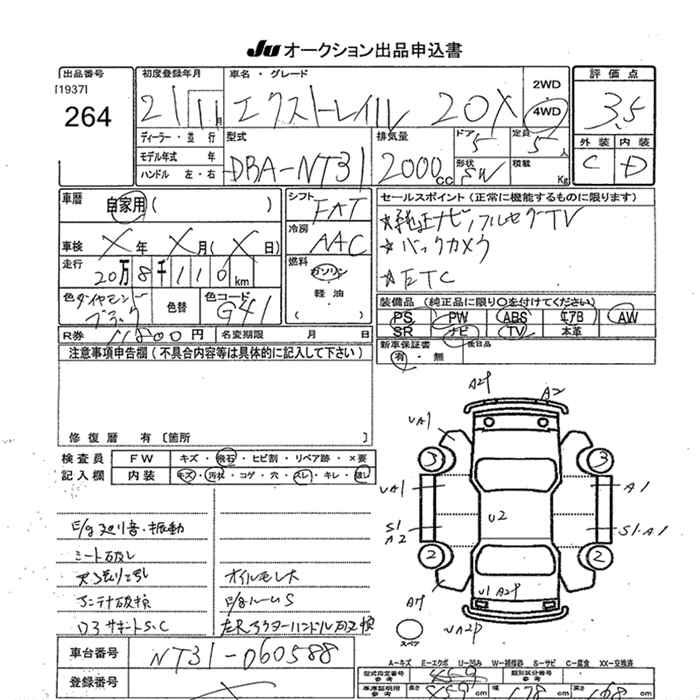 Ju オークション出品申込書
出品番号 初度登録年月 車名・グレード 評価点
[1937]
264
21 11月 エクストレイル 20X 2WD・4WD 3.5
ディーラー・並行 型式 排気量 ドア 定員 外装 内装
モデル年式 年 DBA-NT31 2000cc 5 5人 C D
ハンドル 左・右 形状 SW 積載 Kg
車暦 自家用( )
シフト FAT
セールスポイント(正常に機能するものに限ります)
★純正ナビ,フルセグTV
★バックカメラ
★ETC
車検 X年 X月(X日)
冷房 AAC
走行 20万8千110km
燃料 ガソリン・軽油・( )
色 ダイヤモンドブラック 色替 色コード G41
装備品(純正品に限り○を付けてください)
PS PW ABS エアB AW
SR ナビ TV 本革
R券 11800円 名変期限 月 日
新車保証書 有・無 後日品
注意事項申告欄(不具合内容等は具体的に記入して下さい)
修復歴 有〔箇所 〕
検査員 FW キズ・飛石・ヒビ割・リペア跡・×要
記入欄 内装 キズ・汚れ・コゲ・穴・スレ・キレ・渡し
E/g廻り音・振動
シート破れ
アンテナ破損 オイルモレ大
E/gルームS
A2P A2
UA1
3 3
UA1 A1
S1 A2 U2 S1・A1
2 2
A1 U1 A2P
UA2P
スペア
車台番号 NT31-060588
登録番号 X
A-キズ E-エクボ U-凹み W-補修跡 S-サビ C-腐食 XX-交換済
型式指定番号 類別区分番号